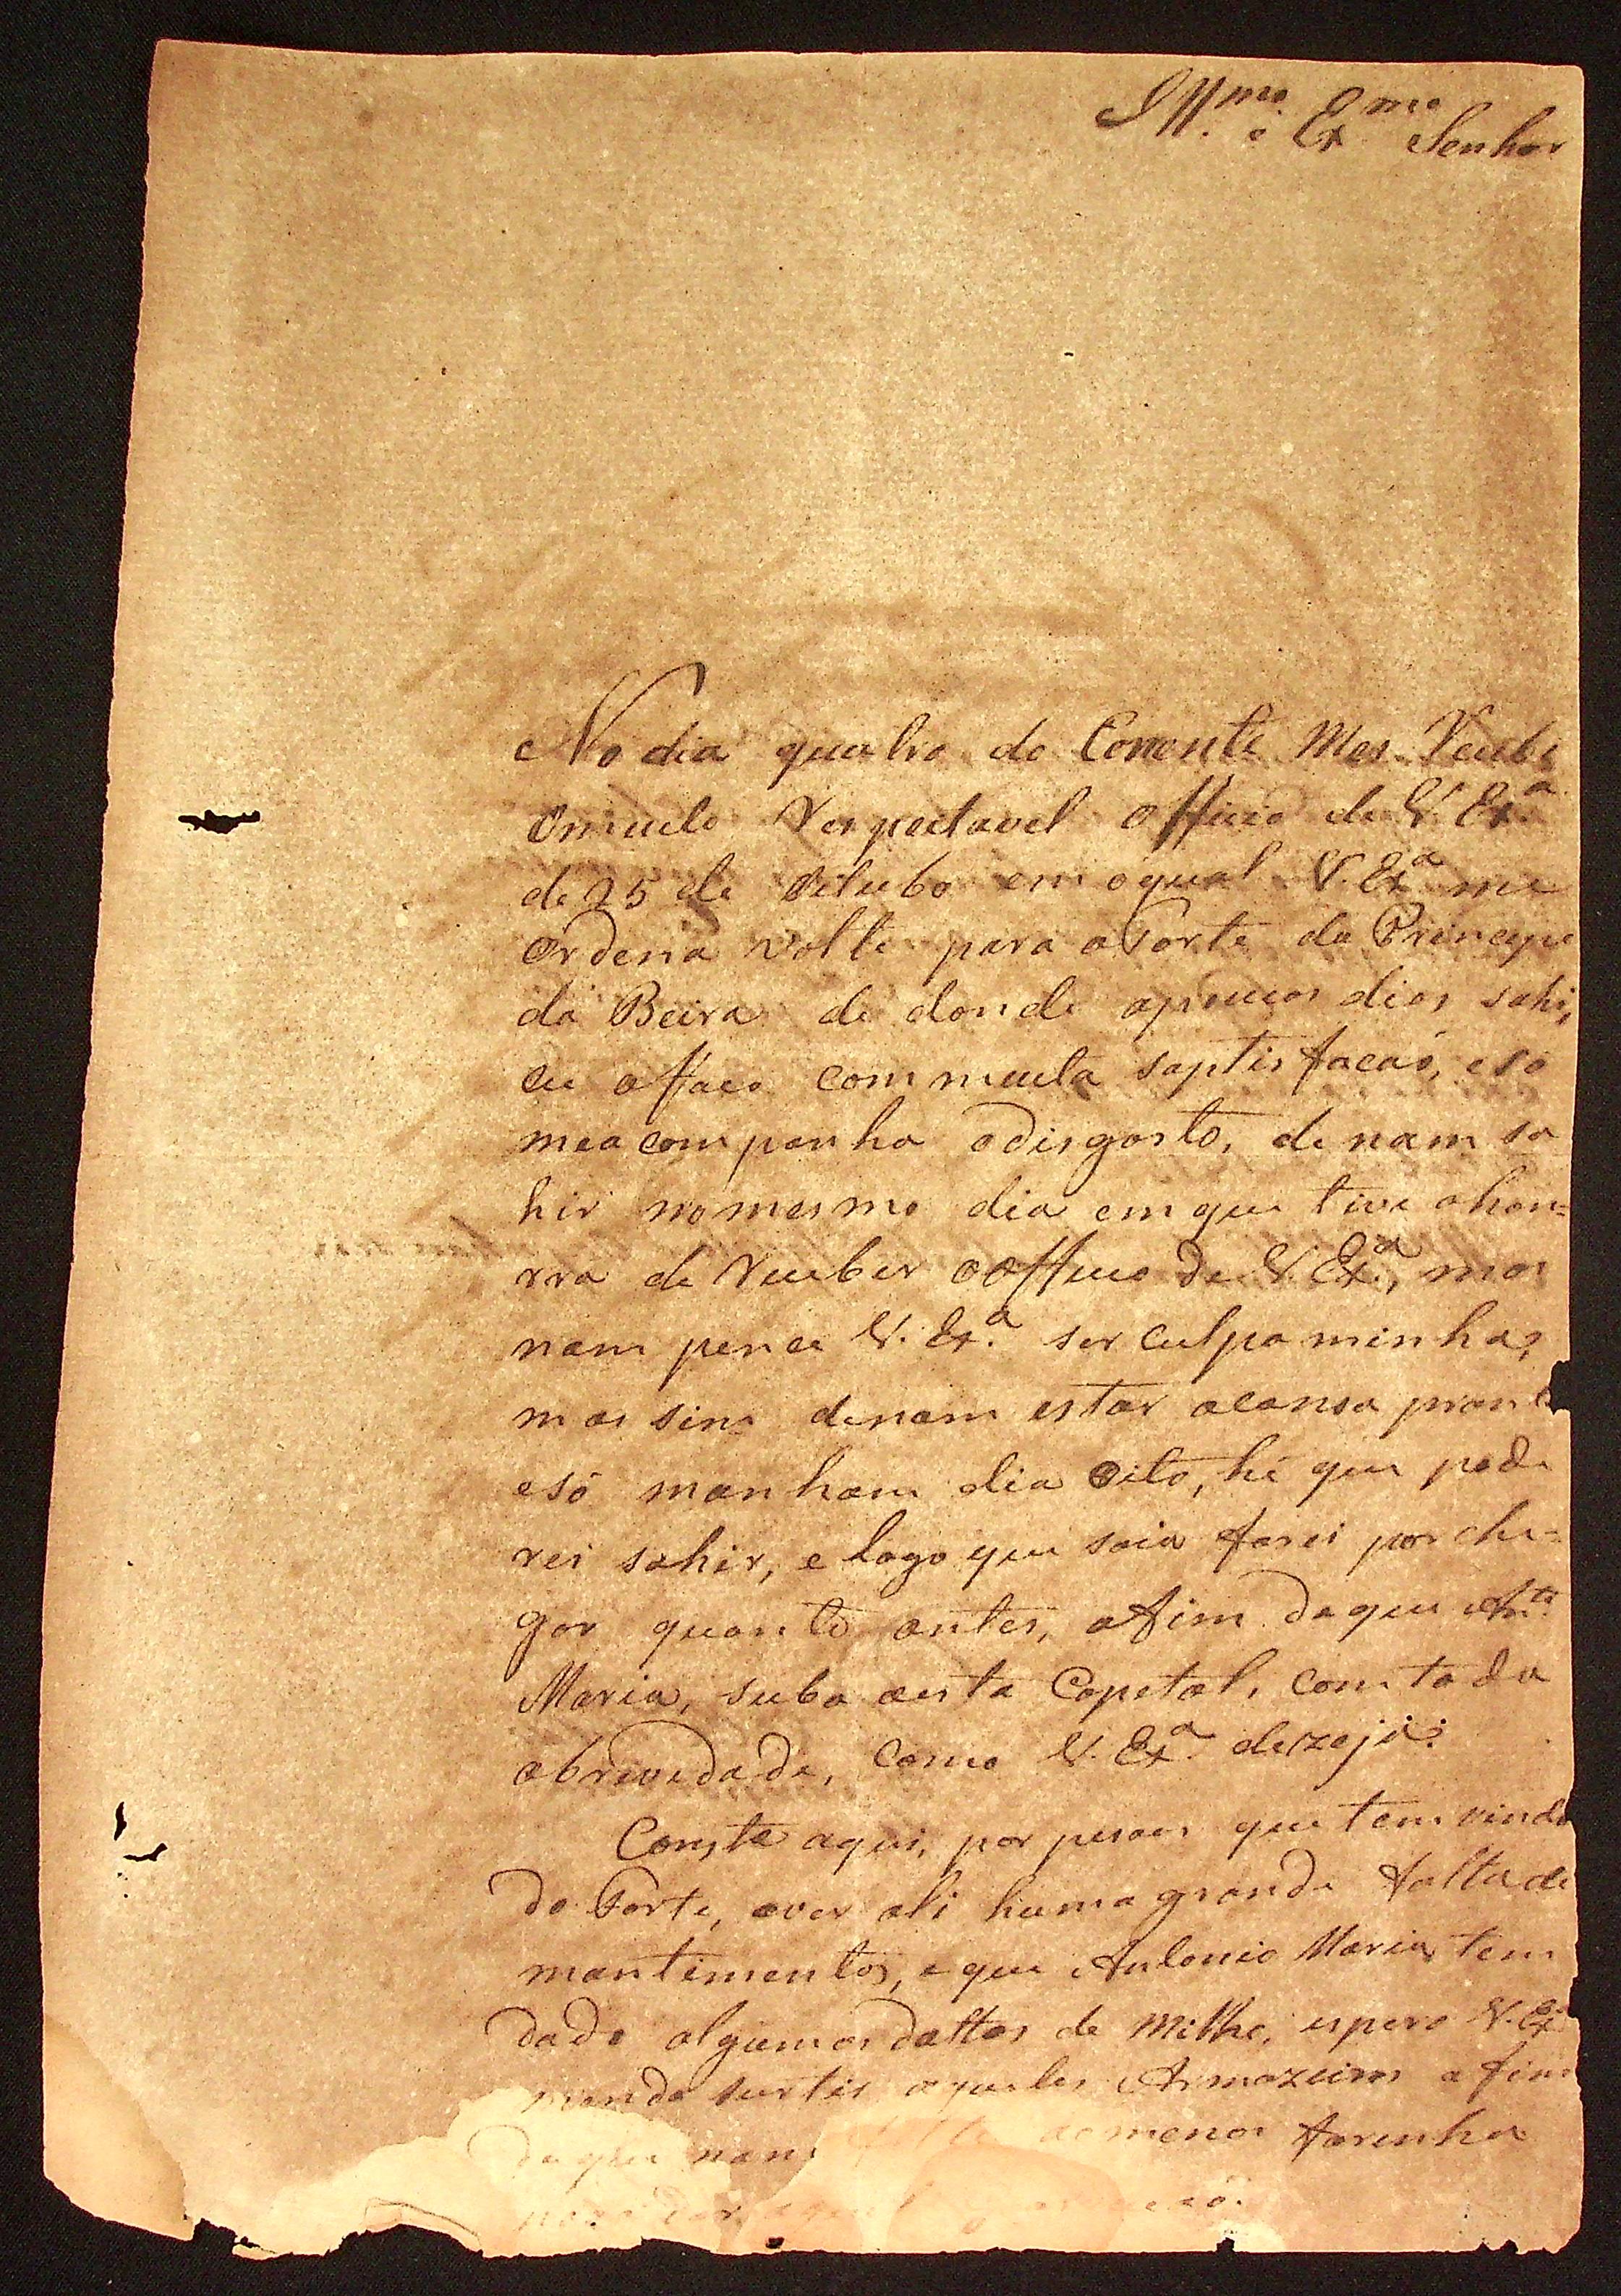 Ill.mo e Ex.mo Senhor
No dia quatro do Corrente Mes Recebi
omuito Respeitavel Officio de V. Ex.a
de 25 de Oitubro em oqual V. Ex.a me
Ordena volte para oForte do Principe
da Beira de donde apoucos dias sahi,
eu ofaço com muita saptisfacaõ, esó
meacompanha odisgosto, de nam sa
hir nomesmo dia emque tive ahon=
rra de Receber oOfficio de V. Ex.a, mas
nam pence V. Ex.a ser culpa minha,
mas sim denam estar acanoa pronta
esó manham dia Oito, hé que pode
rei sahir, e logo que saia farei por che=
gar quanto antes, afim deque Ant.o
Maria, suba aesta Capetal, com toda
abrevedade, como V. Ex.a dezeja.
Consta aqui, por pesoas que tem vindo
do Forte, aver ali huma grande falta de
mantimentos, eque Antonio Maria tem
dado algumas dattas de Milho, espero V. Ex.a
mande surtir aqueles Armazeins afim
deque nam aomenos farinha